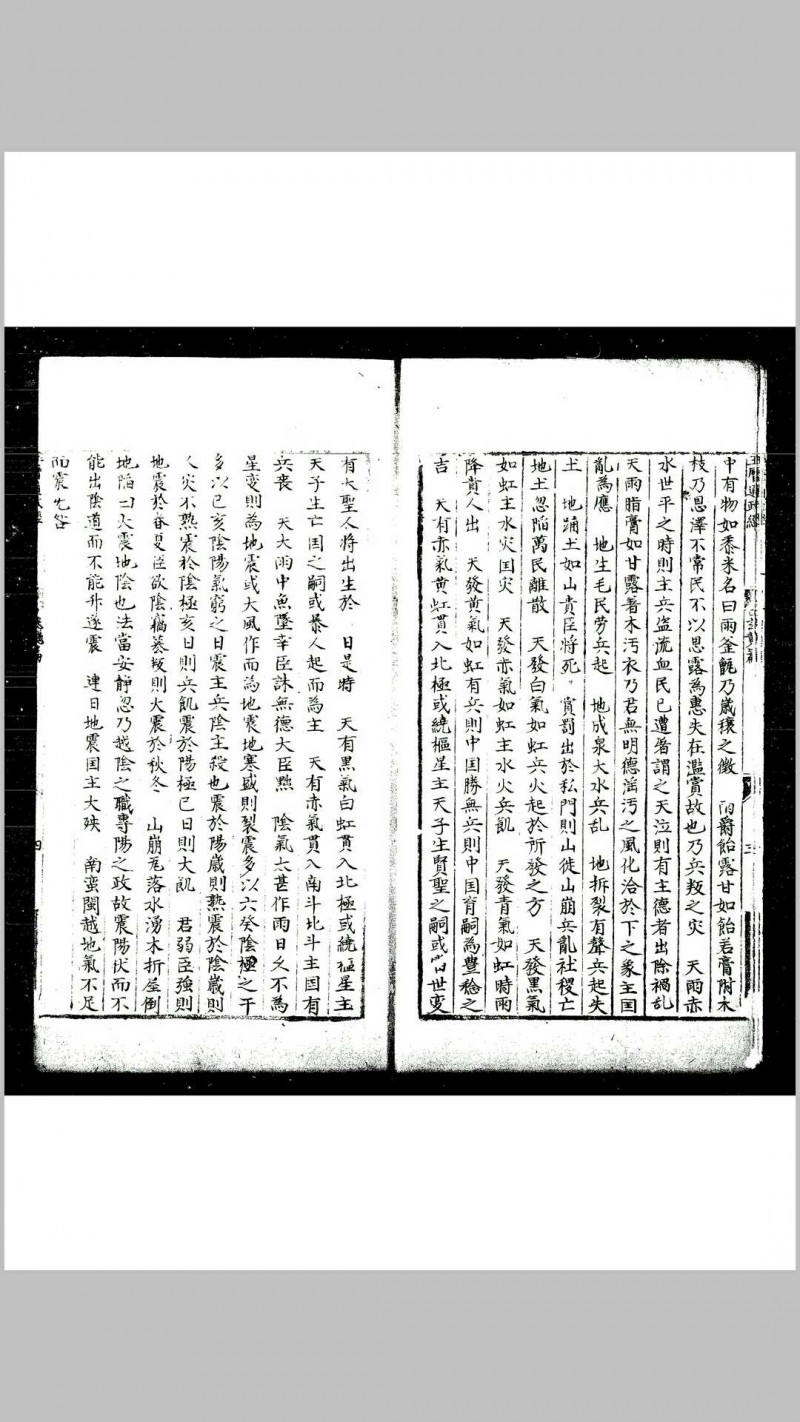 中有物如黍米名曰雨釜甑乃歲穰之徵 雨爵餳露甘如飴若膏附木
枝乃恩澤不常民不以恩露為惠失在濫賞故也乃兵叛之灾 天雨赤
水世平之時則主兵盜流血民已遭者謂之天泣則有主德者出除禍乱
天雨脂膏如甘露著木汚衣乃君無明德滛汚之風化洽於下之象主国
亂為應 地生毛民劳兵起 地成泉大水兵乱 地拆裂有聲兵起失
土 地踊土如山貴臣將死。賞罰出於私門則山徙山崩兵亂社稷亡
地土忽陷萬民離散 天發白氣如虹兵火起於所發之方 天發黑氣
如虹主水灾国灾 天發赤氣如虹主水火兵飢 天發青氣如虹時雨
降貴人出 天發黄氣如虹有兵則中国勝無兵則中国育嗣為豊稔之
吉 天有赤氣黄虹貫入北極或繞樞星主天子生賢聖之嗣或當世变
有大聖人將出生於 日是時 天有黒氣白虹貫入北極或繞樞星主
天子生亡国之嗣或暴人起而為主 天有赤氣貫入南斗北斗主国有
兵丧 天大雨中魚墜宰臣誅無德大臣黜 陰氣太甚作雨日久不為
星变則為地震或大風作而為地震地寒盛則裂震多以六癸陰極之干
多以巳亥陰陽氣窮之日震主兵陰主殺也震於陽歲則熱震於陰歲則
人灾不熟震於陰極亥日則兵飢震於陽極巳日則大飢 君弱臣強則
地震於春夏臣欲陰竊慕叛則大震於秋冬 山崩瓦落水湧木折屋倒
地陷曰大震地陰也法當安靜忽乃越陰之職專陽之政故震陽伏而不
能出陰道而不能升遂震 連日地震国主大殃 南蛮閩越地氣不足
而震无咎
玉曆通政經
三
四